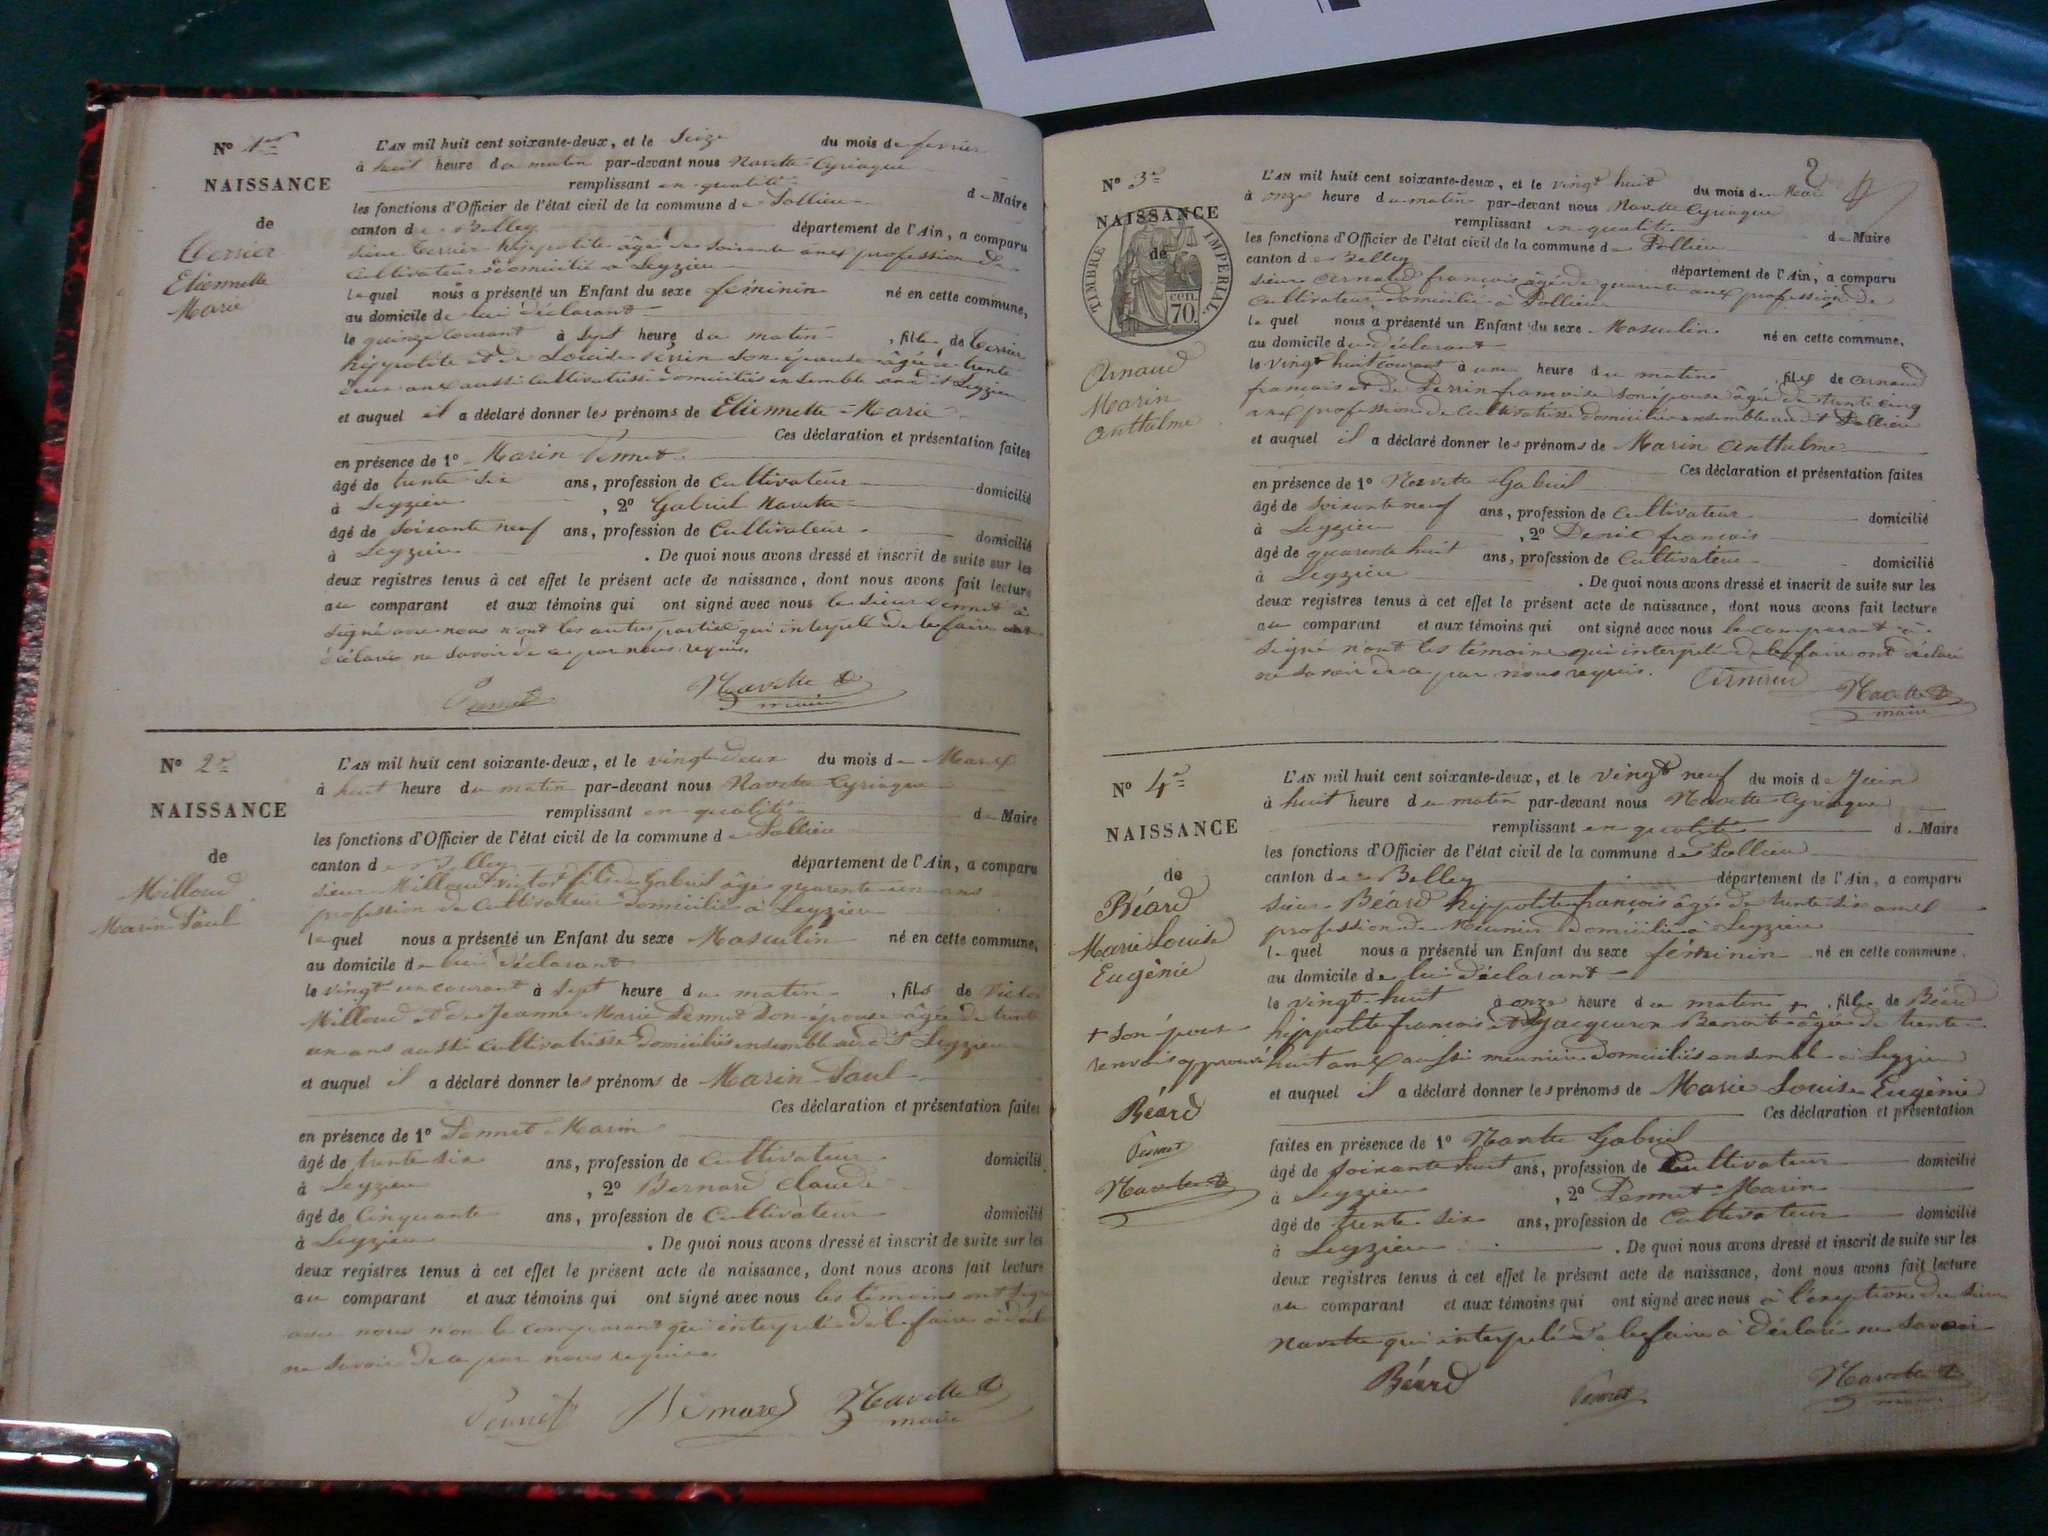 N° 1er
NAISSANCE
de
Terrier
Etiennette
Marie
L'AN mil huit cent soixante-deux, et le seize du mois de fevrier
à huit heure du matin par-devant nous Navette Cyriaque
remplissant en qualité de Maire
les fonctions d'Officier de l'état civil de la commune de Pollieu
canton de Belley département de l'Ain, a comparu
sieur Terrier hippolite âgé de soixante ans profession de
Cultivateur domicilié à Leyzieu
lequel nous a présenté un Enfant du sexe féminin né en cette commune,
au domicile de lui déclarant
le quinze courant à sept heure du matin, fille de Terrier
hippolite et de Louise Perrin son epouse âgée de trente
deux ans aussi Cultivatrisse domiciliés ensemble au dit Leyzieu
et auquel il a déclaré donner les prénoms de Etiennette Marie
Ces déclaration et présentation faites
en présence de 1° Marin Pennet
âgé de trente six ans, profession de Cultivateur domicilié
à Leyzieu, 2° Gabriel Navette
âgé de soixante neuf ans, profession de Cultivateur domicilié
à Leyzieu. De quoi nous avons dressé et inscrit de suite sur les
deux registres tenus à cet effet le présent acte de naissance, dont nous avons fait lecture
au comparant et aux témoins qui ont signé avec nous le sieur Pennet à
signé avec nous n'ont les autres parties qui interpelé de le faire ont
déclaré ne savoir de ce par nous requis.
Pennet Navette
maire
N° 2e
NAISSANCE
de
Milloud
Marin Paul
L'AN mil huit cent soixante-deux, et le vingt deux du mois de Mars
à huit heure du matin par-devant nous Navette Cyriaque
remplissant en qualité de Maire
les fonctions d'Officier de l'état civil de la commune de Pollieu
canton de Belley département de l'Ain, a comparu
sieur Milloud victor fils de Gabriel âgé quarante un ans
profession de Cultivateur domicilié à Leyzieu
lequel nous a présenté un Enfant du sexe Masculin né en cette commune,
au domicile de lui déclarant
le vingt un courant à sept heure du matin, fils de victor
Milloud et de Jeanne Marie Pennet son epouse âgée de trente
un ans aussi cultivatrisse domiciliés ensemble au dit Leyzieu
et auquel il a déclaré donner les prénoms de Marin Paul
Ces déclaration et présentation faites
en présence de 1° Pennet Marin
âgé de trente six ans, profession de Cultivateur domicilié
à Leyzieu, 2° Bernard Claude
âgé de Cinquante ans, profession de Cultivateur domicilié
à Leyzieu. De quoi nous avons dressé et inscrit de suite sur les
deux registres tenus à cet effet le présent acte de naissance, dont nous avons fait lecture
au comparant et aux témoins qui ont signé avec nous les témoins ont signé
avec nous non le comparant qui interpelé de le faire à déclaré
ne savoir de ce par nous requis.
Pennet Bernard Navette
maire
2
N° 3e
NAISSANCE
de
TIMBRE IMPERIAL
70 cen.
Arnaud
Marin
Anthelme
L'AN mil huit cent soixante-deux, et le vingt huit du mois de Mai
à onze heure du matin par-devant nous Navette Cyriaque
remplissant en qualité de Maire
les fonctions d'Officier de l'état civil de la commune de Pollieu
canton de Belley département de l'Ain, a comparu
sieur Arnaud françois âgé de quarante ans profession de
Cultivateur domicilié à Pollieu
lequel nous a présenté un Enfant du sexe Masculin né en cette commune,
au domicile du déclarant
le vingt huit courant à une heure du matin, fils de Arnaud
françois et de Perrin françoise son épouse âgée de trente cinq
ans profession de Cultivatrisse domiciliés ensemble au dit Pollieu
et auquel il a déclaré donner les prénoms de Marin Anthelme
Ces déclaration et présentation faites
en présence de 1° Navette Gabriel
âgé de soixante neuf ans, profession de Cultivateur domicilié
à Leyzieu, 2° françois
âgé de quarente huit ans, profession de Cultivateur domicilié
à Leyzieu. De quoi nous avons dressé et inscrit de suite sur les
deux registres tenus à cet effet le présent acte de naissance, dont nous avons fait lecture
au comparant et aux témoins qui ont signé avec nous le comparant à
signé n'ont les témoins qui interpelé de le faire ont déclaré
ne savoir de ce par nous requis. Arnaud Navette
maire
N° 4e
NAISSANCE
de
Béard
Marie Louise
Eugénie
+ son épouse
renvois approuvé
Béard
Pennet
Navette
L'AN mil huit cent soixante-deux, et le vingt neuf du mois de Juin
à huit heure du matin par-devant nous Navette Cyriaque
remplissant en qualité de Maire
les fonctions d'Officier de l'état civil de la commune de Pollieu
canton de Belley département de l'Ain, a comparu
sieur Béard hippolite françois âgé de trente six ans
profession de Meunier domicilié à Leyzieu
lequel nous a présenté un Enfant du sexe féminin né en cette commune.
au domicile de lui déclarant
le vingt huit à onze heure du matin +, fille de Béard
hippolite françois et Jacqueron Benoite âgée de trente
huit ans aussi meunière domiciliés ensemble à Leyzieu
et auquel il a déclaré donner les prénoms de Marie Louise Eugénie
Ces déclaration et présentation
faites en présence de 1° Navette Gabriel
âgé de soixante huit ans, profession de Cultivateur domicilié
à Leyzieu, 2° Pennet Marin
âgé de trente six ans, profession de Cultivateur domicilié
à Leyzieu. De quoi nous avons dressé et inscrit de suite sur les
deux registres tenus à cet effet le présent acte de naissance, dont nous avons fait lecture
au comparant et aux témoins qui ont signé avec nous à l'exeption du sieur
Navette qui interpelé de le faire à déclaré ne savoir
Béard Pennet Navette
maire